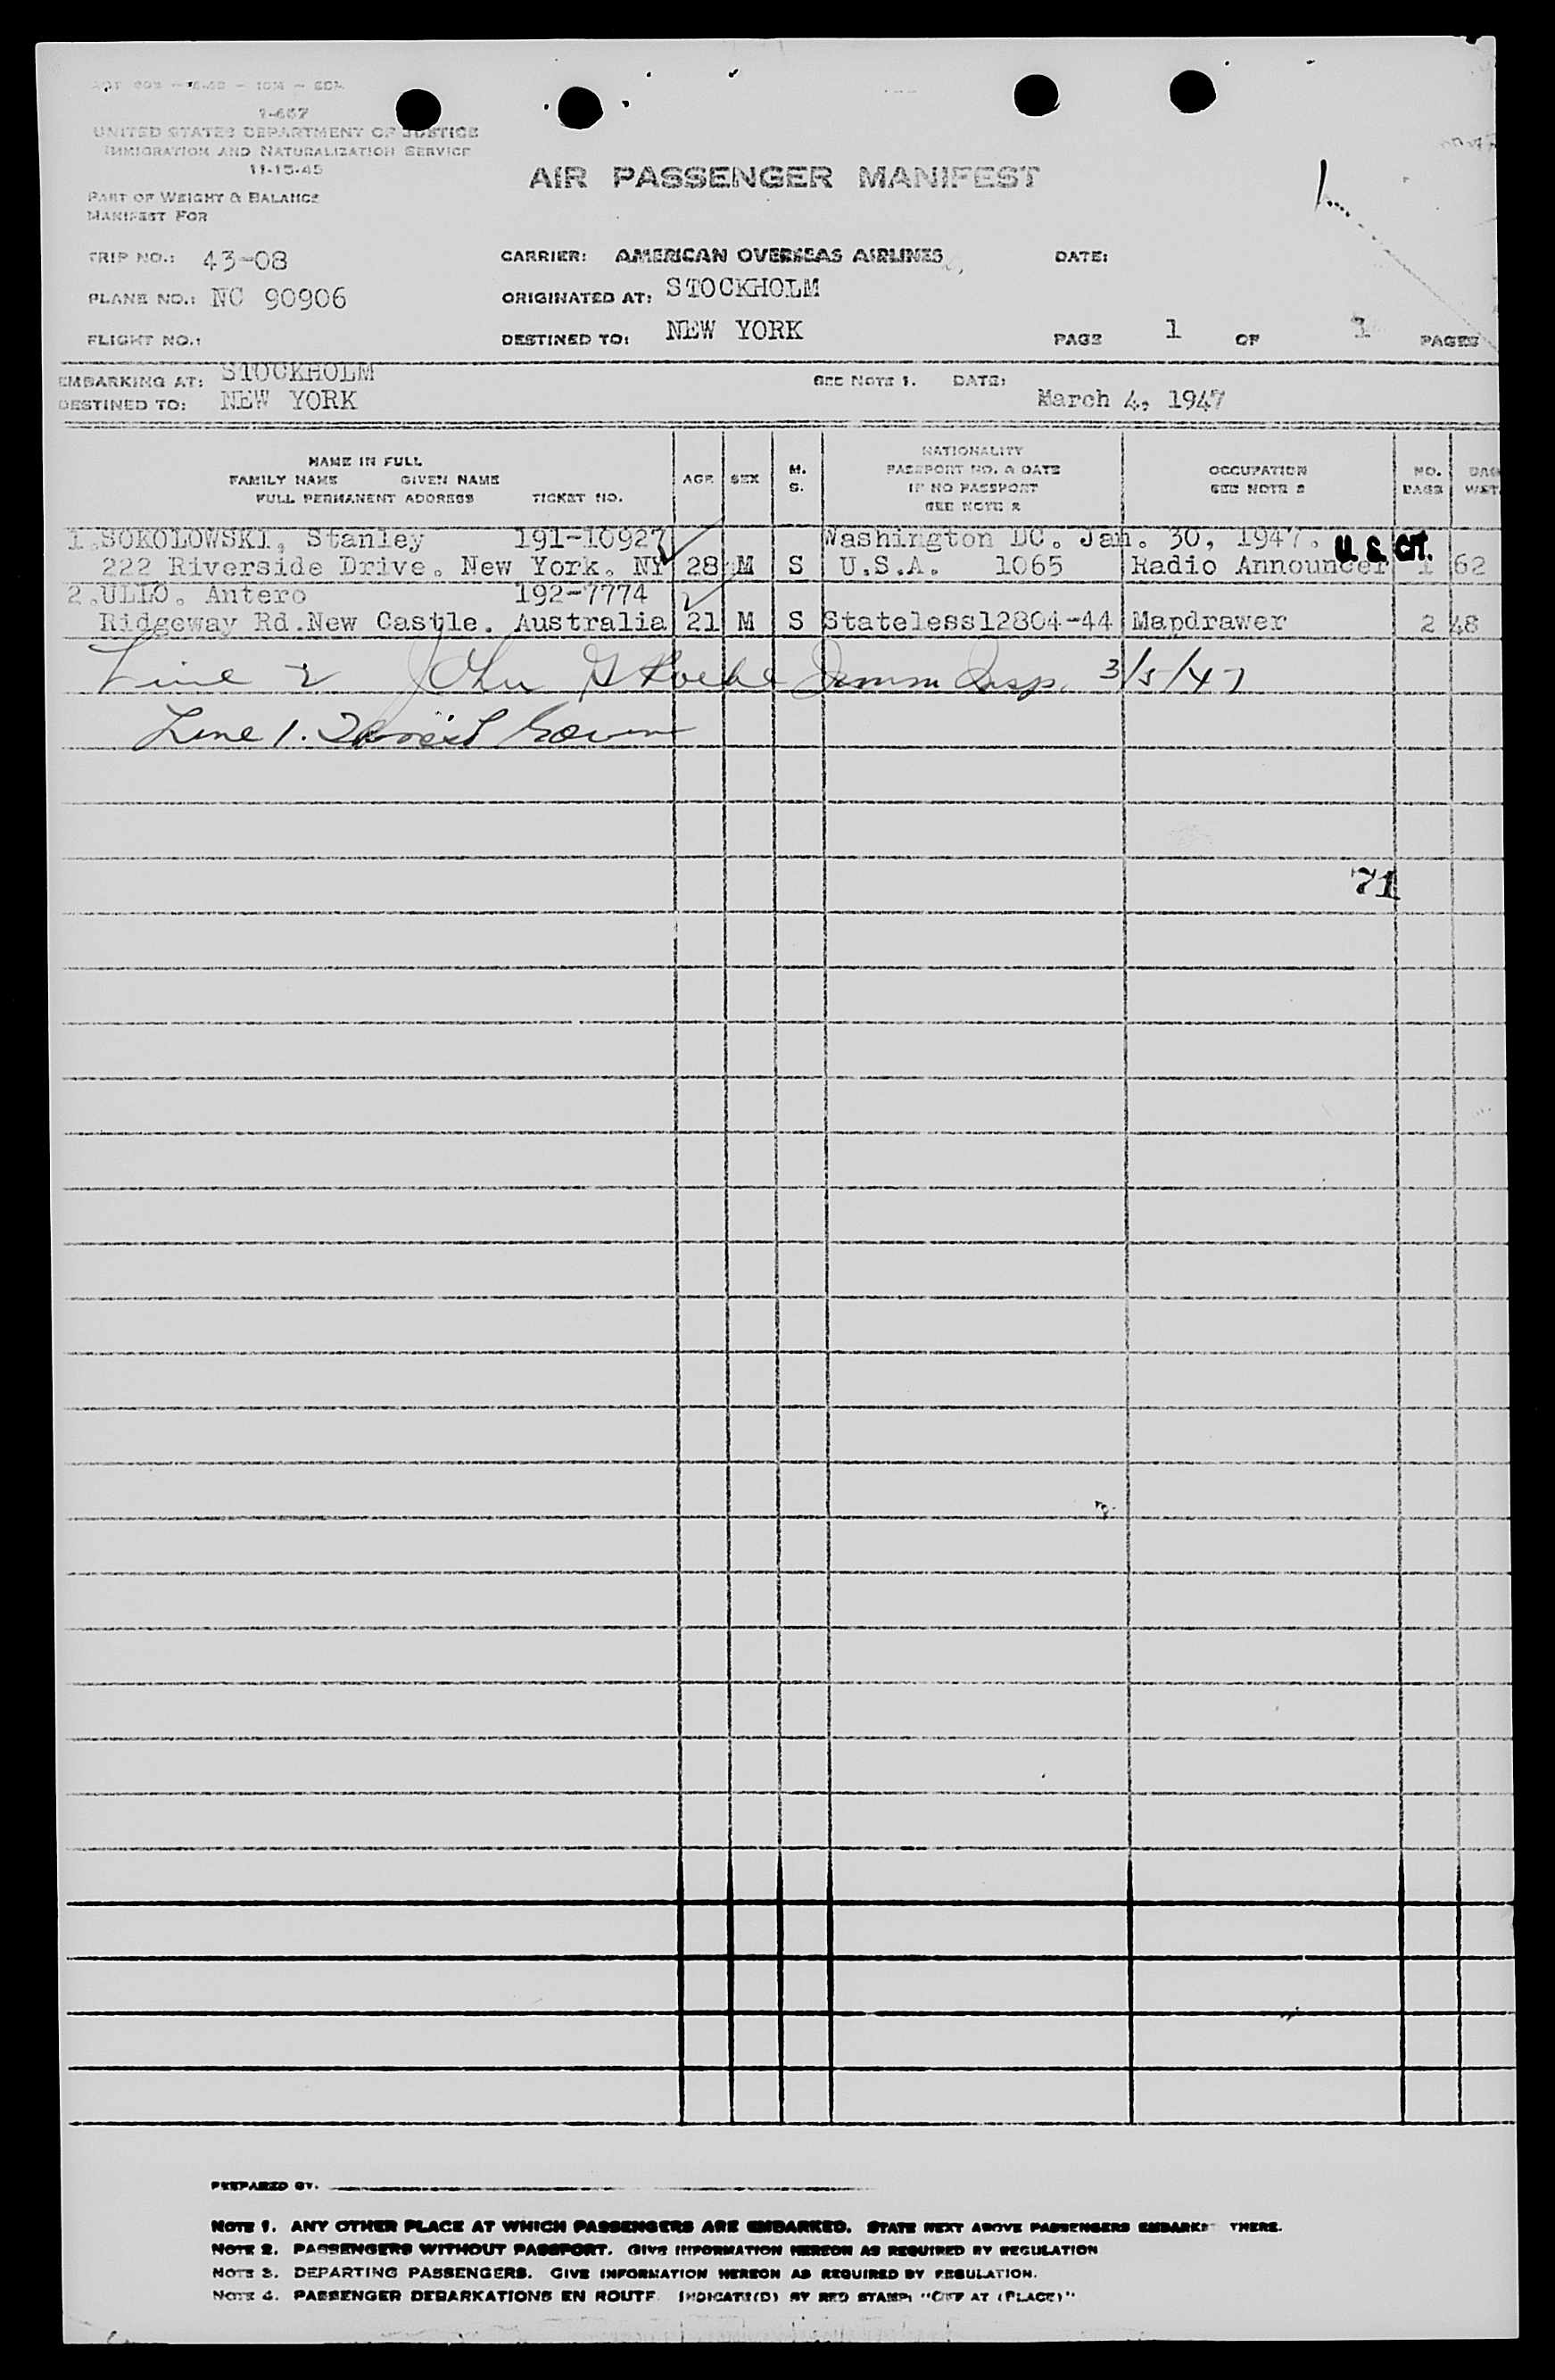 1-657
UNITED STATES DEPARTMENT OF JUSTICE
IMMIGRATION AND NATURALIZATION SERVICE
11-15-45
AIR PASSENGER MANIFEST
PART OF WEIGHT & BALANCE
MANIFEST FOR
TRIP NO.: 43-08 CARRIER: AMERICAN OVERSEAS AIRLINES DATE:
PLANE NO.: NC 90906 ORIGINATED AT: STOCKHOLM
FLIGHT NO.: DESTINED TO: NEW YORK PAGE 1 OF 1 PAGES
EMBARKING AT: STOCKHOLM SEE NOTE 1. DATE:
DESTINED TO: NEW YORK March 4, 1947
NAME IN FULL
FAMILY NAME GIVEN NAME
FULL PERMANENT ADDRESS TICKET NO.
AGE SEX M. S.
NATIONALITY
PASSPORT NO. & DATE
IF NO PASSPORT
SEE NOTE 2
OCCUPATION
SEE NOTE 2
NO. BAGS
BAG WGT.
1.SOKOLOWSKI, Stanley 191-10927 Washington DC. Jan. 30, 1947. U. S. CIT.
222 Riverside Drive. New York. NY 28 M S U.S.A. 1065 Radio Announcer 1 62
2.ULLO. Antero 192-7774
Ridgeway Rd.New Castle. Australia 21 M S Stateless12804-44 Mapdrawer 2 48
Line 2 John G Immn Insp. 3/5/47
Line 1.
71
PREPARED BY.
NOTE 1. ANY OTHER PLACE AT WHICH PASSENGERS ARE EMBARKED. STATE NEXT ABOVE PASSENGERS EMBARKE THERE.
NOTE 2. PASSENGERS WITHOUT PASSPORT. GIVE INFORMATION HEREON AS REQUIRED BY REGULATION
NOTE 3. DEPARTING PASSENGERS. GIVE INFORMATION HEREON AS REQUIRED BY REGULATION.
NOTE 4. PASSENGER DEBARKATIONS EN ROUTE. INDICATE(D) BY RED STAMP: "OFF AT (PLACE)"